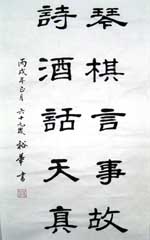 琴棋言事故
詩酒話天真
丙戌年正月 六十九歲 裕華書